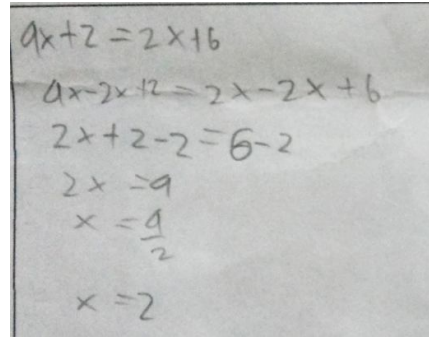 4x+2=2x+6
4x-2x+2=2x-2x+6
2x+2-2=6-2
2x=4
x=4/2
x=2